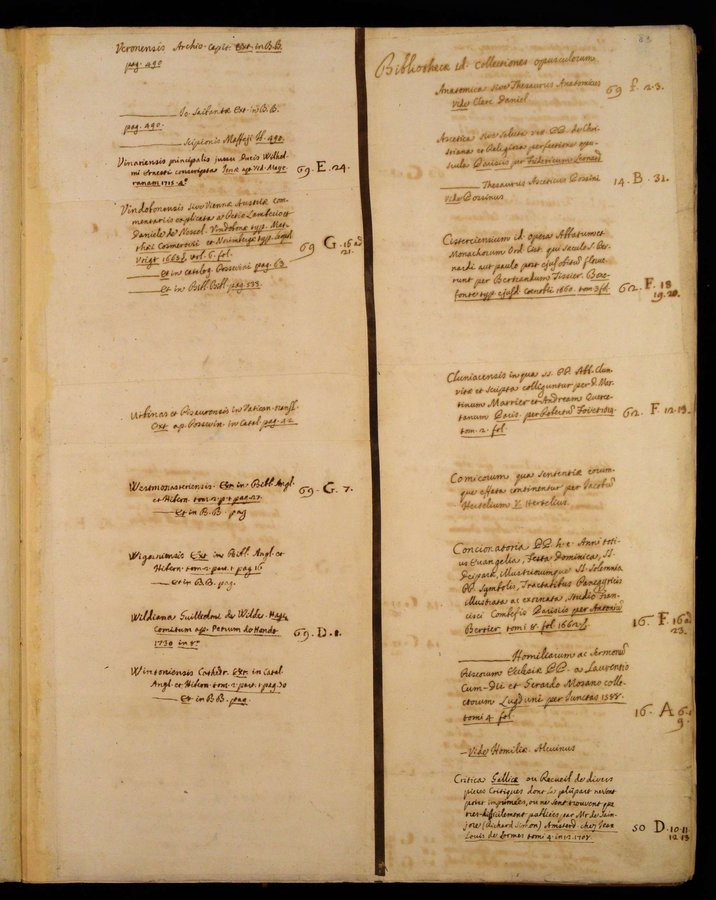 Veronensis Archiv. Capit. Ext. in B.B.
pag. 490
Jo. Saibantæ Ext. in B.B.
pag. 490.
Scipionis Maffeji 490.
Vinariensis principalis jussu Ducis Wilhel-
mi Ernesti conscriptus Jenæ ap. Vid. Meye-
ranam 1715. 4° 69. E. 24.
Vindobonensis sive Viennæ Austriæ com-
mentariis explicata a Petro Lambecio et
Daniele de Nessel. Vindobonæ typ. Mat-
thæi Cosmerovii et Norimbergæ typ. Leopol.
Voigt 1665 vol. 6. fol. 69 G. 16 ad 21.
Et in Catalog. Possevini pag. 63
Et in Bibl. Bibl. pag. 533.
Urbinas et Pisaurensis in Vatican. transl.
Ext. ap. Possevin. in Catal. pag. 42
Westmonasteriensis. Ext. in Bibl. Angl.
et Hibern. tom. 2. p. 1 pag. 27. 69. G. 7.
Et in B.B. pag
Wigorniensis Ext in Bibl. Angl. et
Hibern. tom. 2. part. 1 pag 16
et in B.B. pag.
Wildiana Guilledmi de Wilde. Hagæ
Comitum ap. Petrum de Hondt
1730 in 8° 69. D. 1.
Wintoniensis Cathedr. Ext. in Catal.
Angl. et Hibern. tom. 2. part. 1 pag. 30
Et in B.B. pag.
63
Bibliothecæ id. Collectiones opusculorum
Anatomica sive Thesaurus Anatomicus 69 f. 2. 3.
Vide Clerc Daniel
Ascetica sive selecta vet. PP. de Chri-
stiana et Religiosa perfectione opu-
scula Parisiis per Fridericum Leonard
Thesaurus Asceticus Possini 14. B. 31.
Vide Possinus
Cisterciensium id. opera Abbatum et
Monachorum Ord. Cist. qui sæculo S. Ber-
nardi aut paulo post ejus obitum florue-
runt per Bertrandum Tissier. Bono-
fonte typ. ejusd. Cœnobii 1660. tom 3 fol. 62. F. 18 19. 20.
Cluniacensis in qua SS. PP. Abb. Clun.
vitæ et scripta colliguntur per D. Mar-
tinum Marrier et Andream Querce-
tanum Paris. per Robertum Fouet 1614 62. F. 12. 13.
tom. 2. fol.
Comicorum qua sententiæ eorum-
que effata continentur per Jacobum
Hertelium V. Hertelius.
Concionatoria PP. h. e. Anni toti-
us Evangelia, Festa Dominica, SS.
Deiparæ, illustriorumque SS. Solemnia
PP. Symbolis, Tractatibus Panegyricis
illustrata ac exornata, studio Fran-
cisci Combefis Parisiis per Antonium
Bertier tomi 8. fol. 1662 16. F. 16 ad 23.
Homiliarum ac Sermonum
Priscorum Ecclesiæ PP. a Laurentio
Cum-Dii et Gerardo Mosano colle-
ctorum Lugduni per Junctas 1588.
tomi 4. fol. 16. A 6. 9.
Vide Homiliæ. Alcuinus
Critica Gallicæ ou Recueil de divers
pieces Critiques dont la plûpart ne sont
point imprimées, ou ne sont trouvent que
très-difficilement publiées par Mr. de Sain-
jore (Richard Simon) Amsterd. chez Jean
Louis de Lormes tomi 4. in 12. 1708. 50 D. 10. 11. 12. 13.